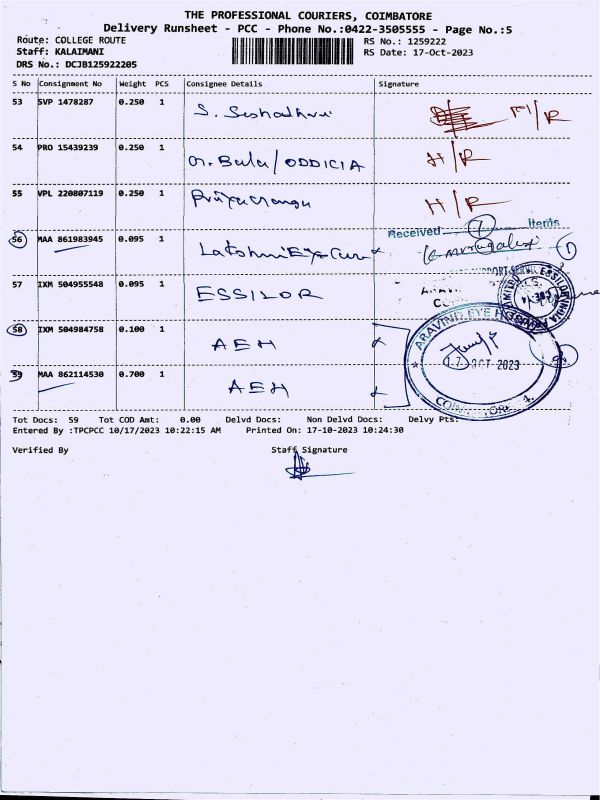 THE PROFESSIONAL COURIERS, COIMBATORE
Delivery Runsheet - PCC - Phone No.:0422-3505555 - Page No.:5
Route: COLLEGE ROUTE RS No.: 1259222
Staff: KALAIMANI RS Date: 17-Oct-2023
DRS No.: DCJB125922205
S No Consignment No Weight PCS Consignee Details Signature
53 SVP 1478287 0.250 1 S. Seshadhri F/R
54 PRO 15439239 0.250 1 M. Bala/ODDICIA H/R
55 VPL 220807119 0.250 1 H/R
Received 7 items
56 MAA 861983945 0.095 1 Lakshmi Eye Care
57 IXM 504955548 0.095 1 ESSILOR
ARAVIND EYE HOSPITAL
58 IXM 504984758 0.100 1 AEH
17 OCT 2023
59 MAA 862114530 0.700 1 AEH
Tot Docs: 59 Tot COD Amt: 0.00 Delvd Docs: Non Delvd Docs: Delvy Pts:
Entered By :TPCPCC 10/17/2023 10:22:15 AM Printed On: 17-10-2023 10:24:30
Verified By Staff Signature